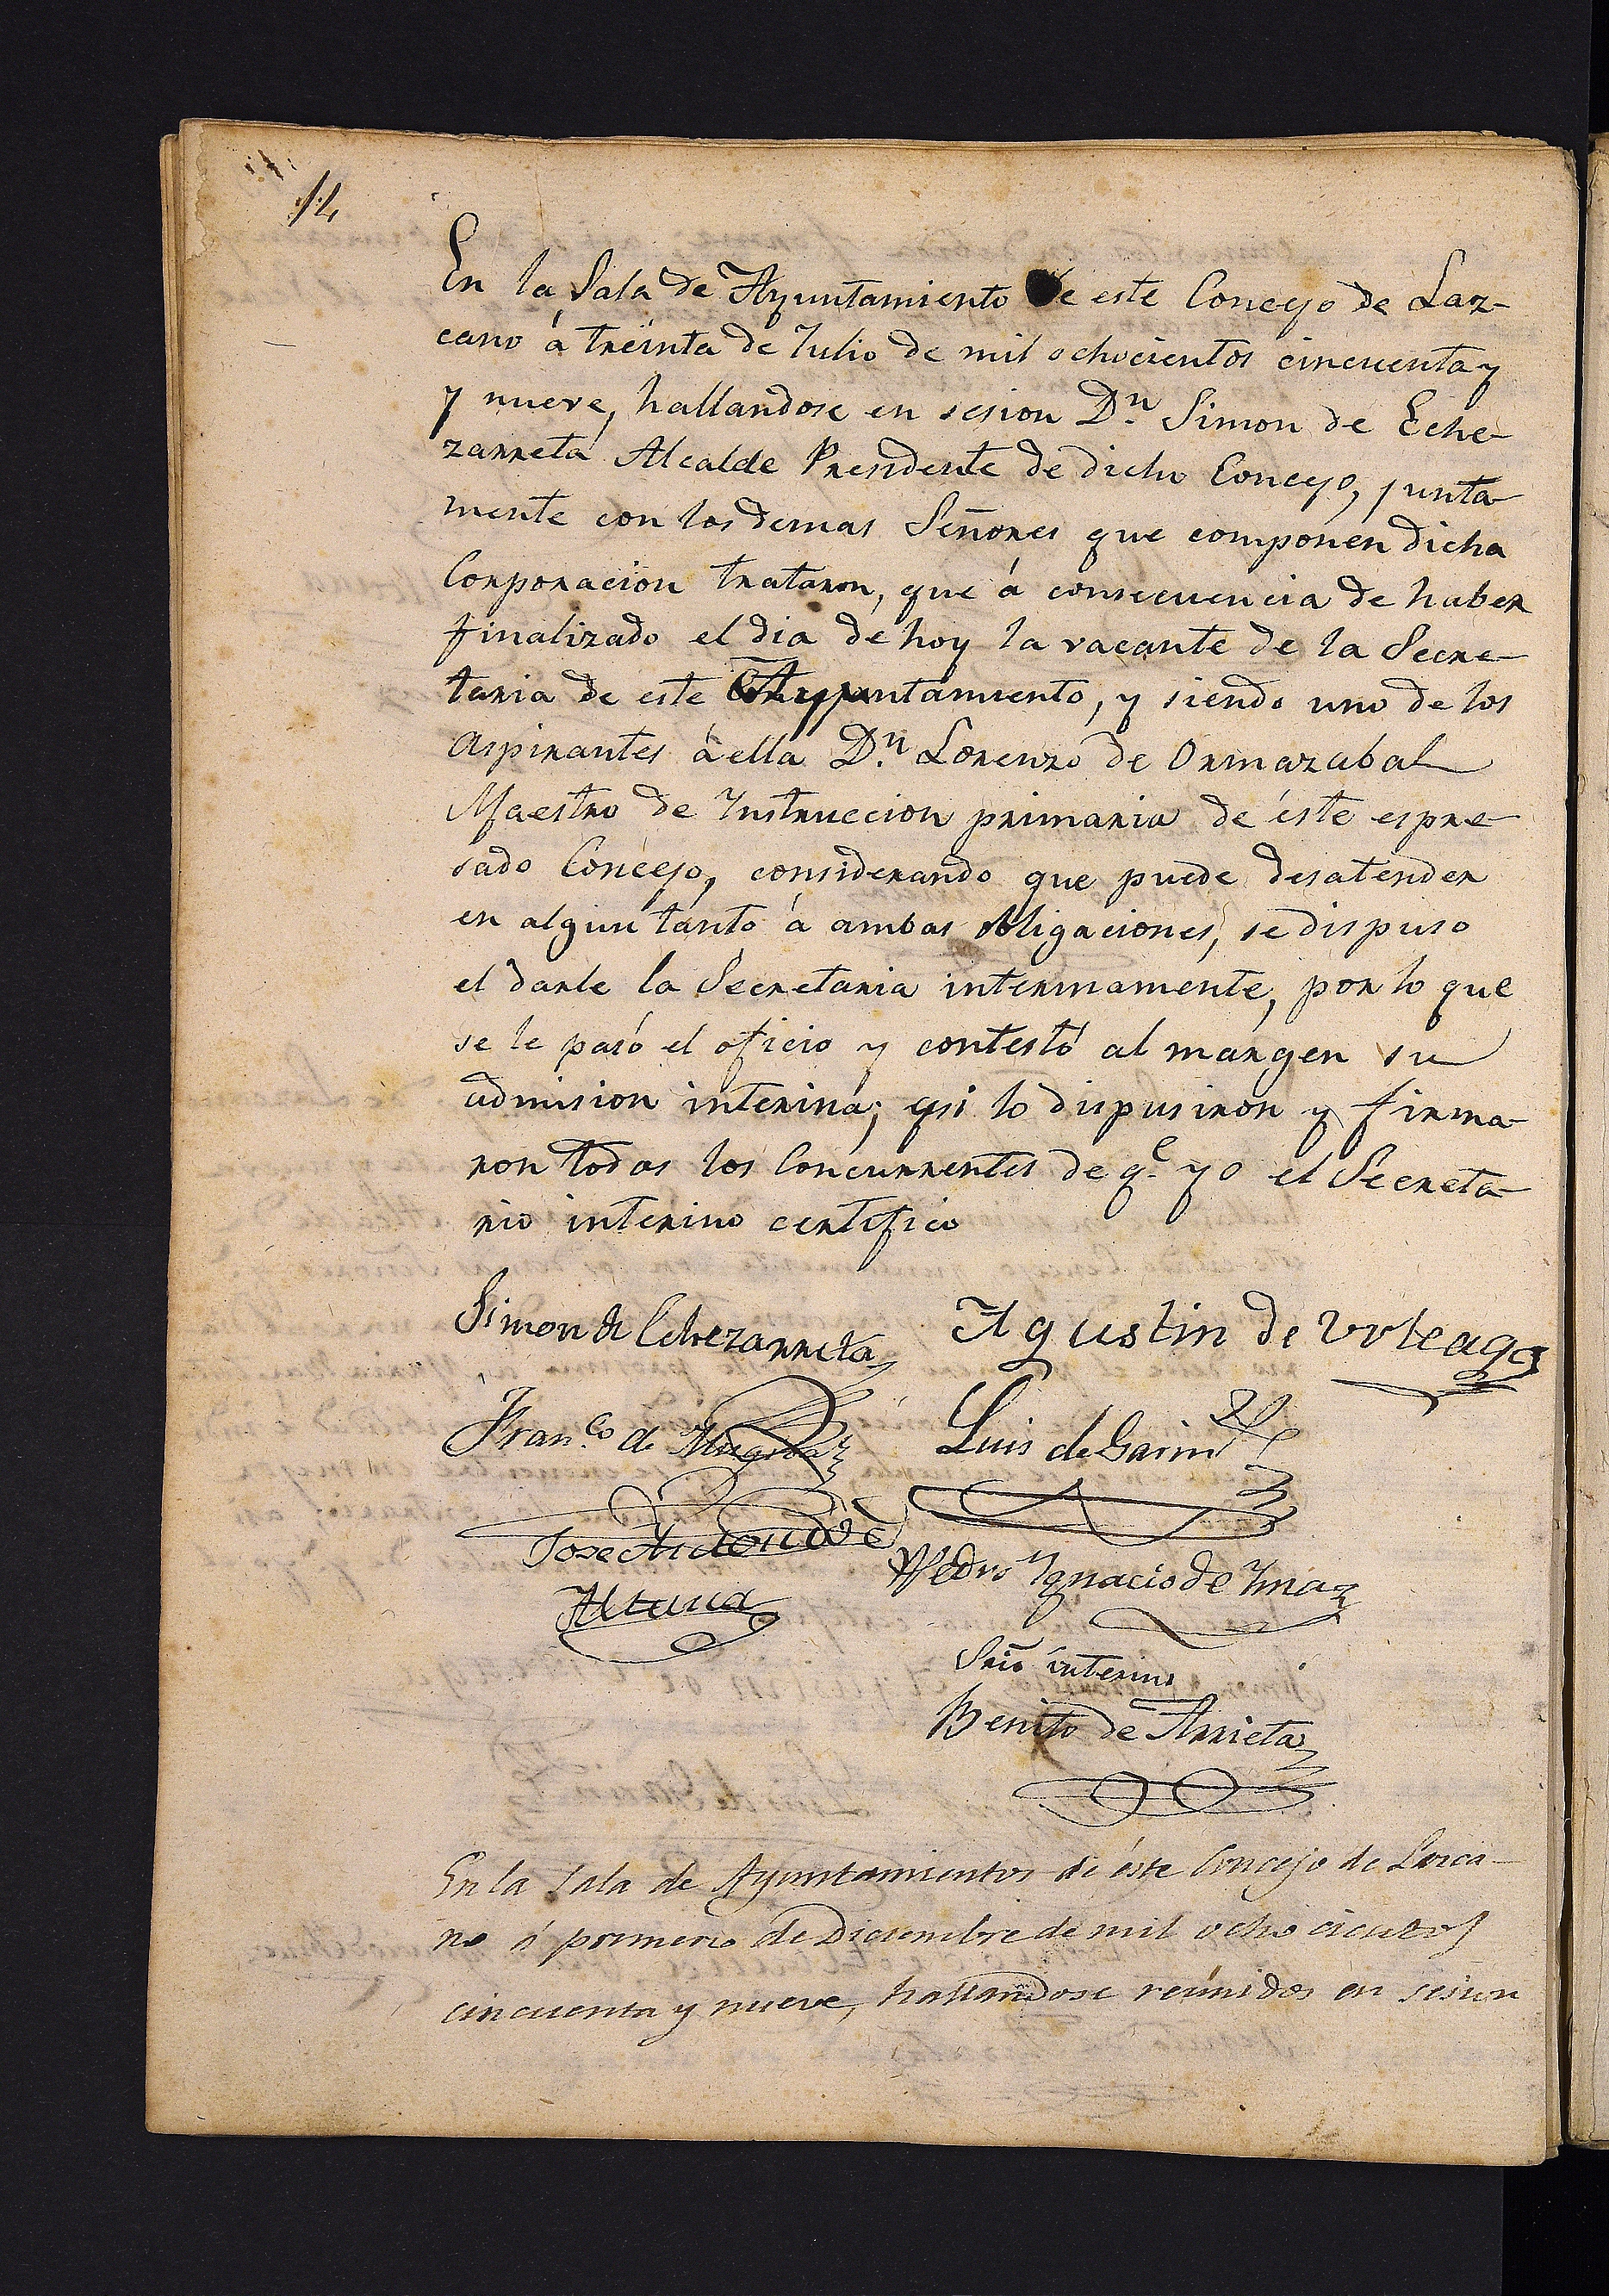 14
En la Sala de Ayuntamiento de este Concejo de Laz-
cano á treinta de Julio de mil ochocientos cincuenta y
y nueve, hallandose en sesion Dn. Simon de Eche-
zarreta Alcalde Presidente de dicho Concejo, junta-
mente con los demas Señores que componen dicha
Corporacion trataron, que á consecuencia de haber
finalizado el dia de hoy la vacante de la Secre-
taria de este Ayuntamiento, y siendo uno de los
aspirantes á ella Dn. Lorenzo de Ormazabal
Maestro de Instruccion primaria de éste espre-
sado Concejo, considerando que puede desatender
en algun tanto á ambas obligaciones, se dispuso
el darle la Secretaria interinamente, por lo que
se le pasó el oficio y contestó al margen su
admision interina; asi lo dispusiron y firma-
ron todos los Concurrentes de qe. yo el Secreta-
rio interino certifico
Simon de Echezarreta
Agustin de Urteaga
Franco. de
Luis de Garin
Jose Antonio de
Altuna
Pedro Ygnacio de Ymaz
Srio interino
Benito de Arrieta
En la Sala de Ayuntamientos de éste Concejo de Lazca-
no á primero de Diciembre de mil ocho cientos
cincuenta y nueve, hallandose reúnidos en sesion